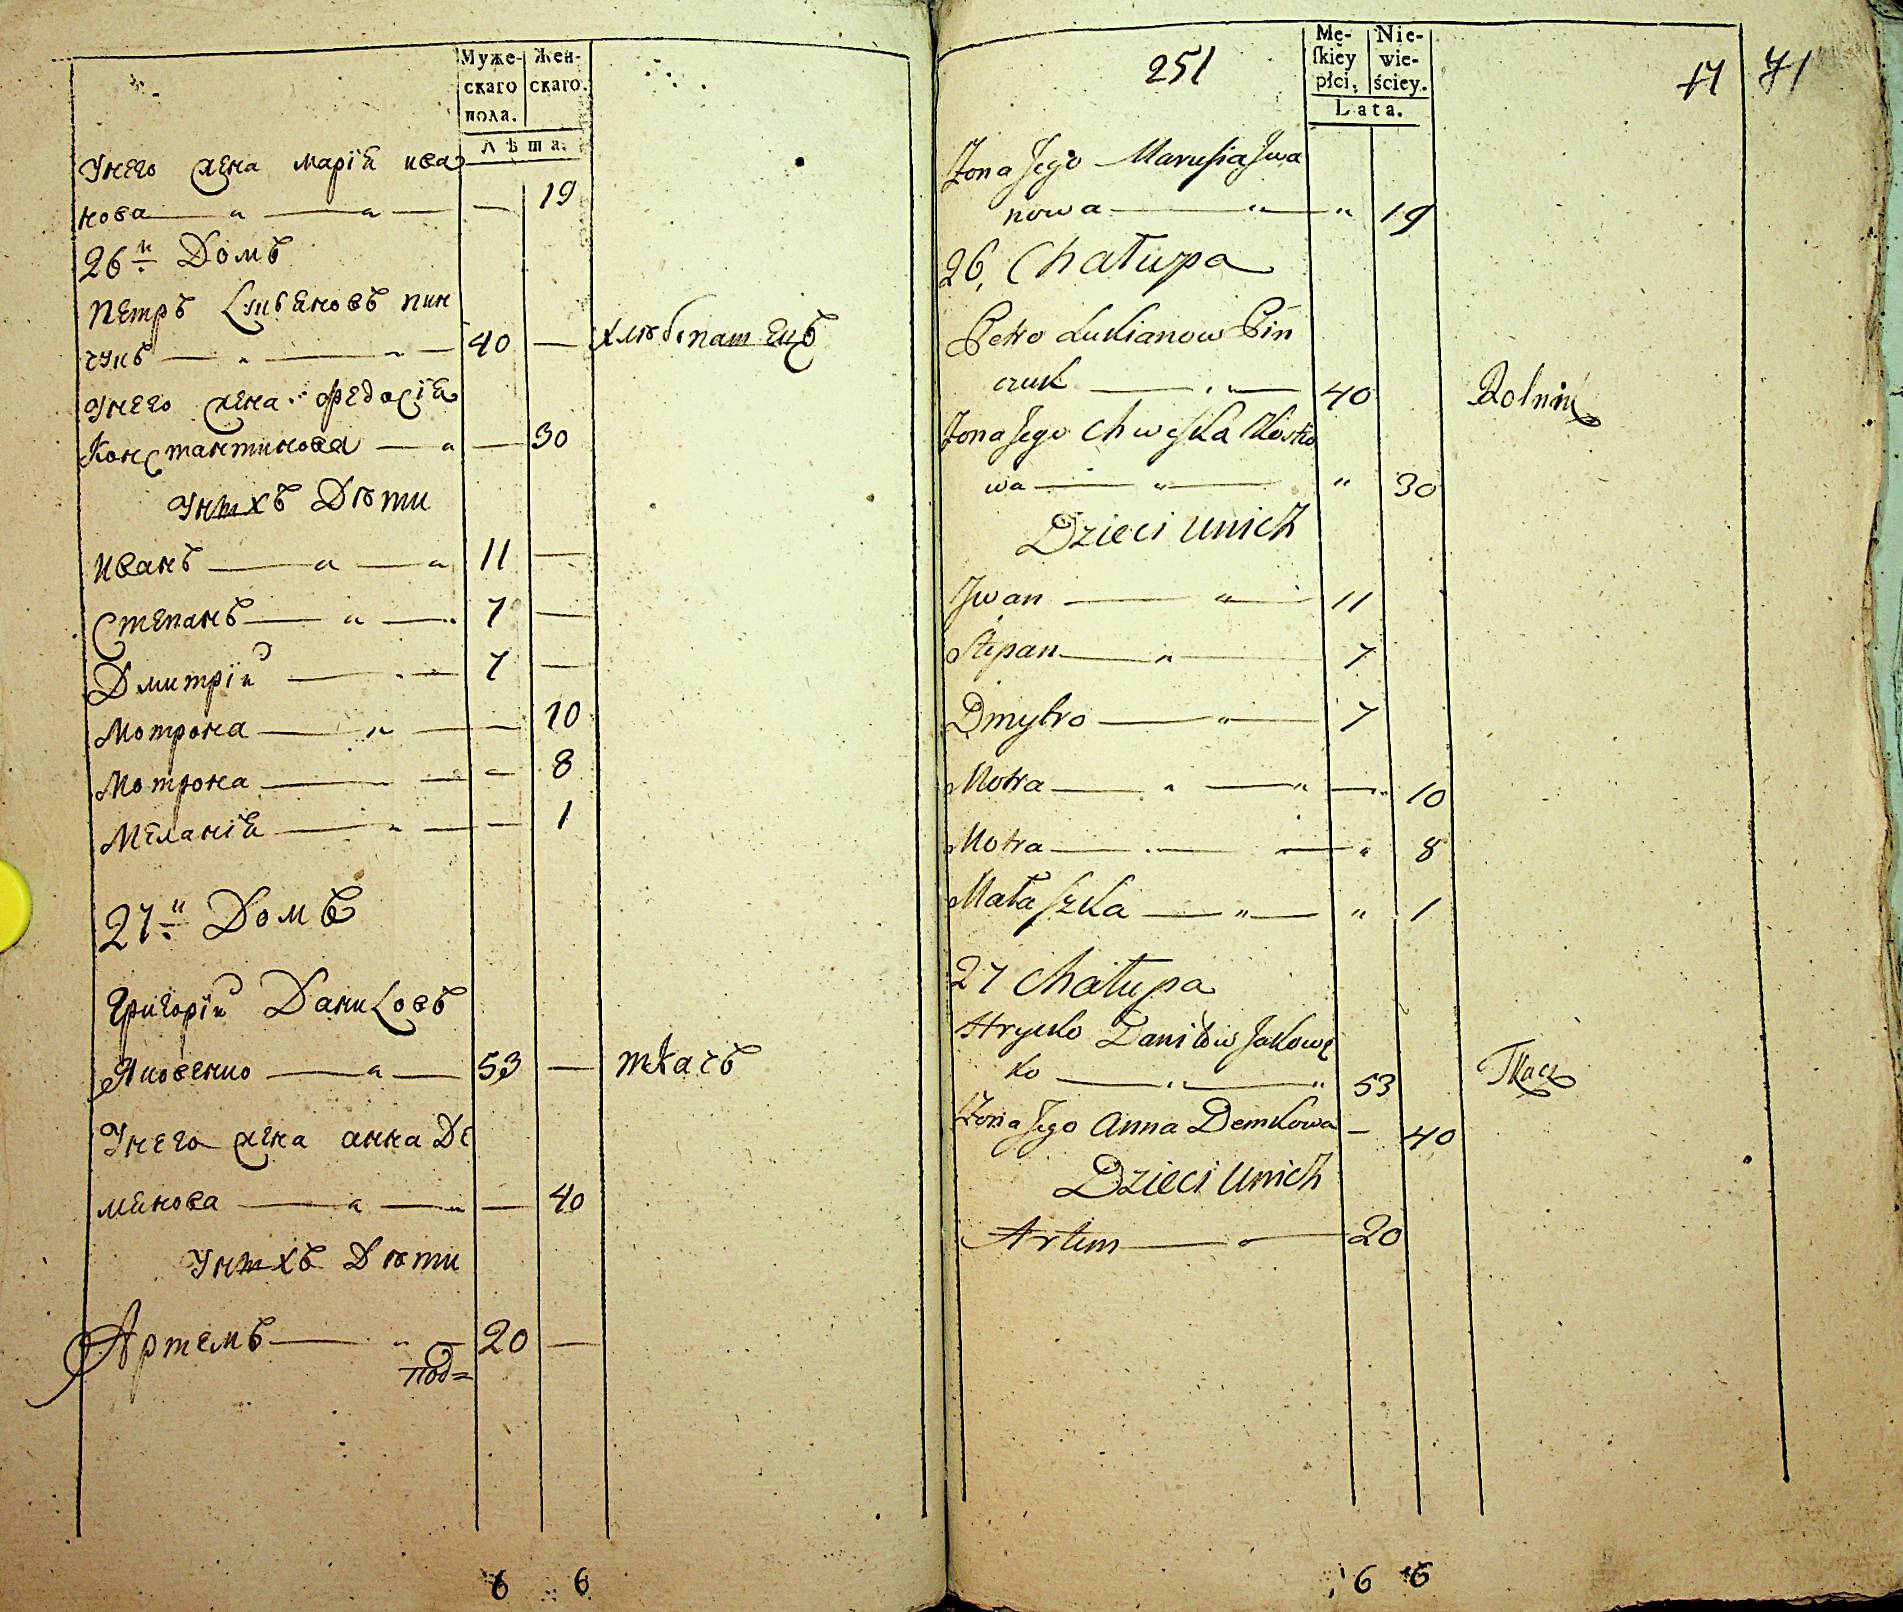 Муже-
скаго
пола.
Жен-
скаго.
Лѣта.
Унего жена марія ива
нова — „ — „ — — 19
26й Домъ
Петръ Лукяновъ пин
чукъ — „ — „ — 40 — хлѣбопашецъ
Унего жена федосія
Константинова — „ — 30
Унихъ Дѣти
Иванъ — „ — „ 11 —
Степанъ — „ — 7 —
Дмитрій — 7 —
Мотрона — „ — — 10
Мотрона — — — 8
Меланія — „ — — 1
27й Домъ
Григорій Даниловъ
Яковенко — „ — 53 — ткачъ
Унего жена анна Де
мянова — „ — „ — 40
Унихъ Дѣти
Артемъ — „ — 20 —
под=
6 6
251
Mę-
skiey
płci,
Nie-
wie-
ściey.
Lata.
71
Żona Jego Marusia Iwa
nowa — „ — „ 19
26, Chałupa
Petro Lukianow Pin
czuk — „ — 40 Rolnik
Żona Jego Chweska Kostio
wa — „ — „ 30
Dzieci unich
Iwan — „ — 11
Stepan — „ — 7
Dmytro — „ — 7
Motra — „ — „ — 10
Motra — — „ 8
Małaszka — „ — „ 1
27 Chałupa
Hrycko Daniłow Jakowę
ko — „ — „ 53 Tkacz
Żona Jego Anna Demkowa — 40
Dzieci unich
Artem — 20
6 6